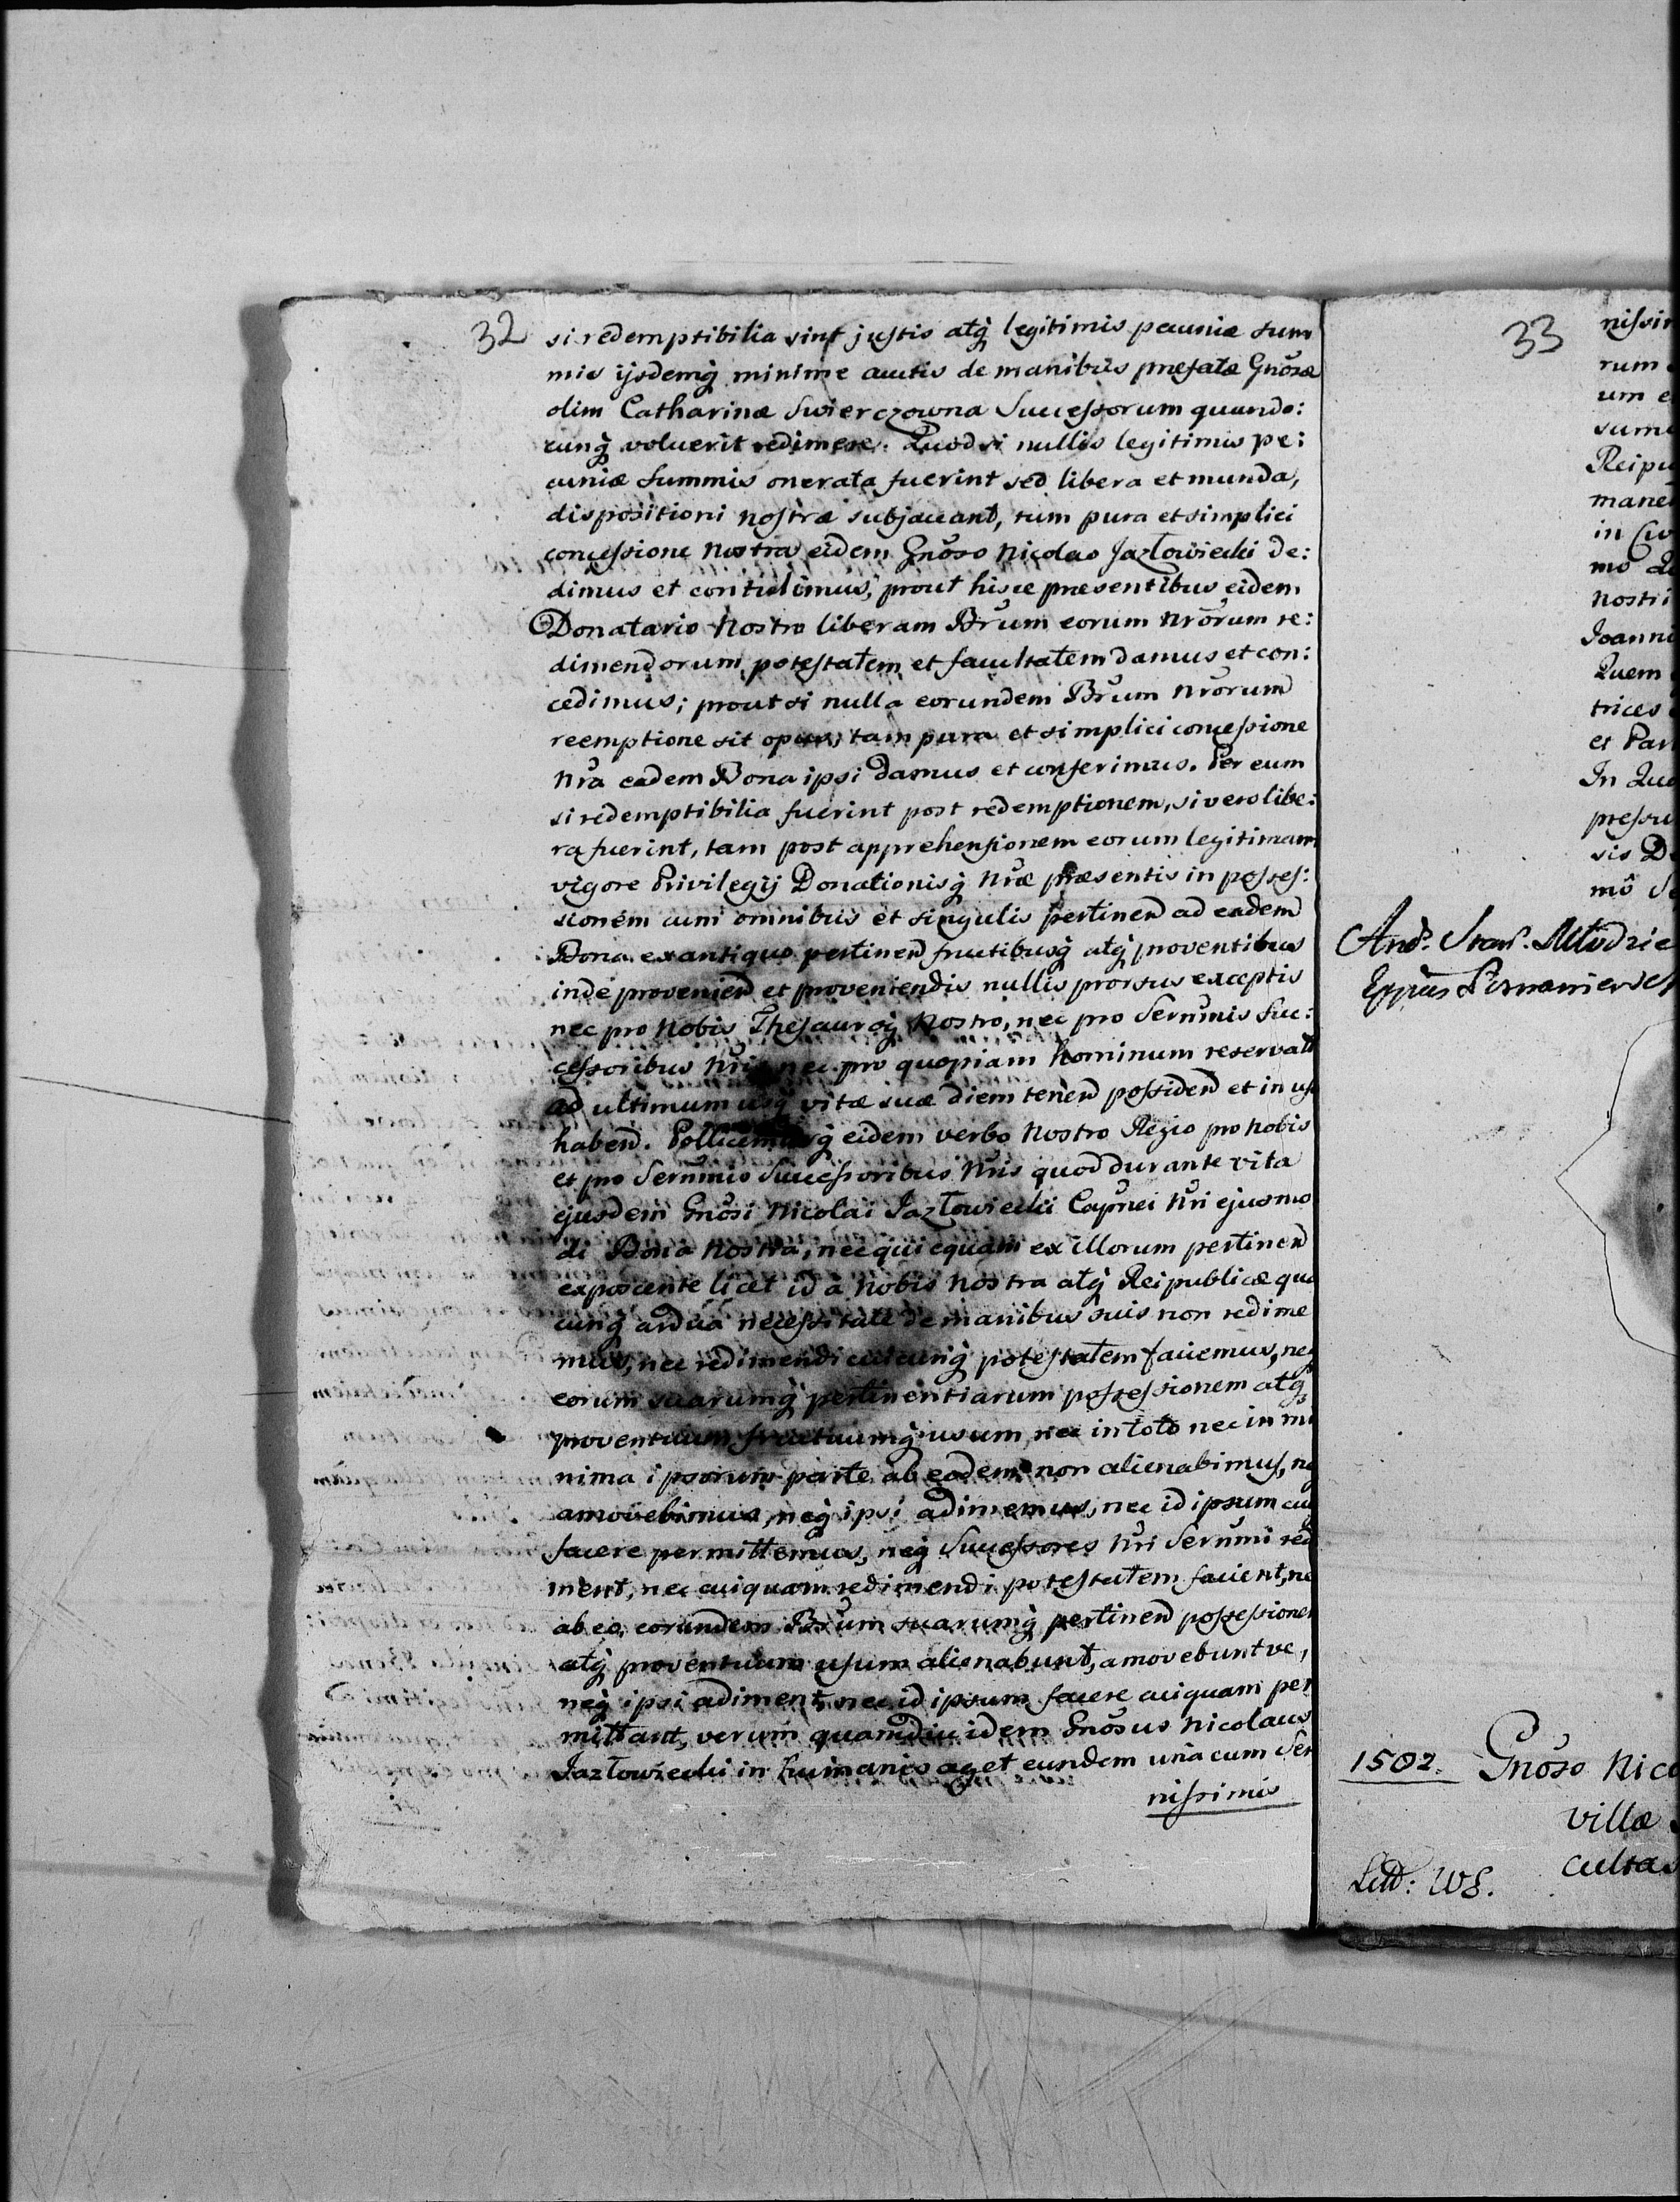 32
si redemptibilia sint justis atq̃ legitimis pecuniæ sum
mis ijsdemq̃ minime auctis de manibus præfatæ Gnõsæ
olim Catharinæ Swierczowna Successorum quando:
cunq̃ voluerit redimere. Quod si nullis legitimis pe:
cuniæ summis onerata fuerint sed libera et munda,
dispositioni nostræ subjaceant, tum pura et simplici
concessione nostra eidem Gnõso Nicolao Jazłowiecki de:
dimus et contulimus, prout hisce præsentibus eidem
Donatario Nostro liberam Brũm eorum nrõrum re:
dimendorum potestatem et facultatem damus et con:
cedimus; prout si nulla eorundem Brũm nrõrum
reemptione sit opus, tam pura et simplici concessione
nrã eadem Bona ipsi damus et conferimus. Per eum
si redemptibilia fuerint post redemptionem, si vero libe:
ra fuerint, tam post apprehensionem eorum legitimam
vigore Privilegij Donationisq̃ nræ præsentis in posses:
sionem cum omnibus et singulis pertinen̄ ad eadem
Bona ex antiquo pertinen̄ fructibusq̃ atq̃ proventibus
inde provenien̄ et proveniendis nullis prorsus exceptis
nec pro Nobis Thesauroq̃ Nostro, nec pro Sernm̃is Suc:
cessoribus nr̃is nec pro quopiam hominum reservatis
ad ultimum usq̃ vitæ suæ diem tenen̄ possiden̄ et in usu
haben̄. Pollicemurq̃ eidem verbo Nostro Regio pro Nobis
et pro Sernm̃is Successoribus Nr̃is quod durante vita
ejusdem Gnõsi Nicolai Jazłowiecki Capnei Nr̃i ejusmo
di Bona Nostra, nec quicquam ex illorum pertinen̄
exposcente licet id à Nobis Nostra atq̃ Reipublicæ qua
cunq̃ ardua necessitate de manibus suis non redime
mus, nec redimendi cuicunq̃ potestatem faciemus, neq̃
eorum suarumq̃ pertinentiarum possessionem atq̃
proventuum fructuumq̃ usum, nec in toto nec in mi
nima ipsorum parte ab eodem non alienabimus, ne
amovebimus, neq̃ ipsi adimemus, nec id ipsum cui
facere permittemus, neq̃ Successores Nr̃i Sernm̃i redi
ment, nec cuiquam redimendi potestatem facient, ne
ab eo, eorundem Brũm suarumq̃ pertinen̄ possessionem
atq̃ proventuum usum alienabunt, amovebunt ve,
neq̃ ipsi adiment, nec id ipsum facere cuiquam per
mittant, verum quamdiu idem Gnõsus Nicolaus
Jazłowiecki in humanis aget eundem una cum Ser
nissimis
33
nissim
rum
um e
sum
Reipu
mane
in Civ
mo
Nostri
Joanni
Quem
trices
et Par
In Quo
pressu
sis D
mô Se
And. Młodzie
1502. Gnõso Nico
villæ
cultas
Litt: WS.